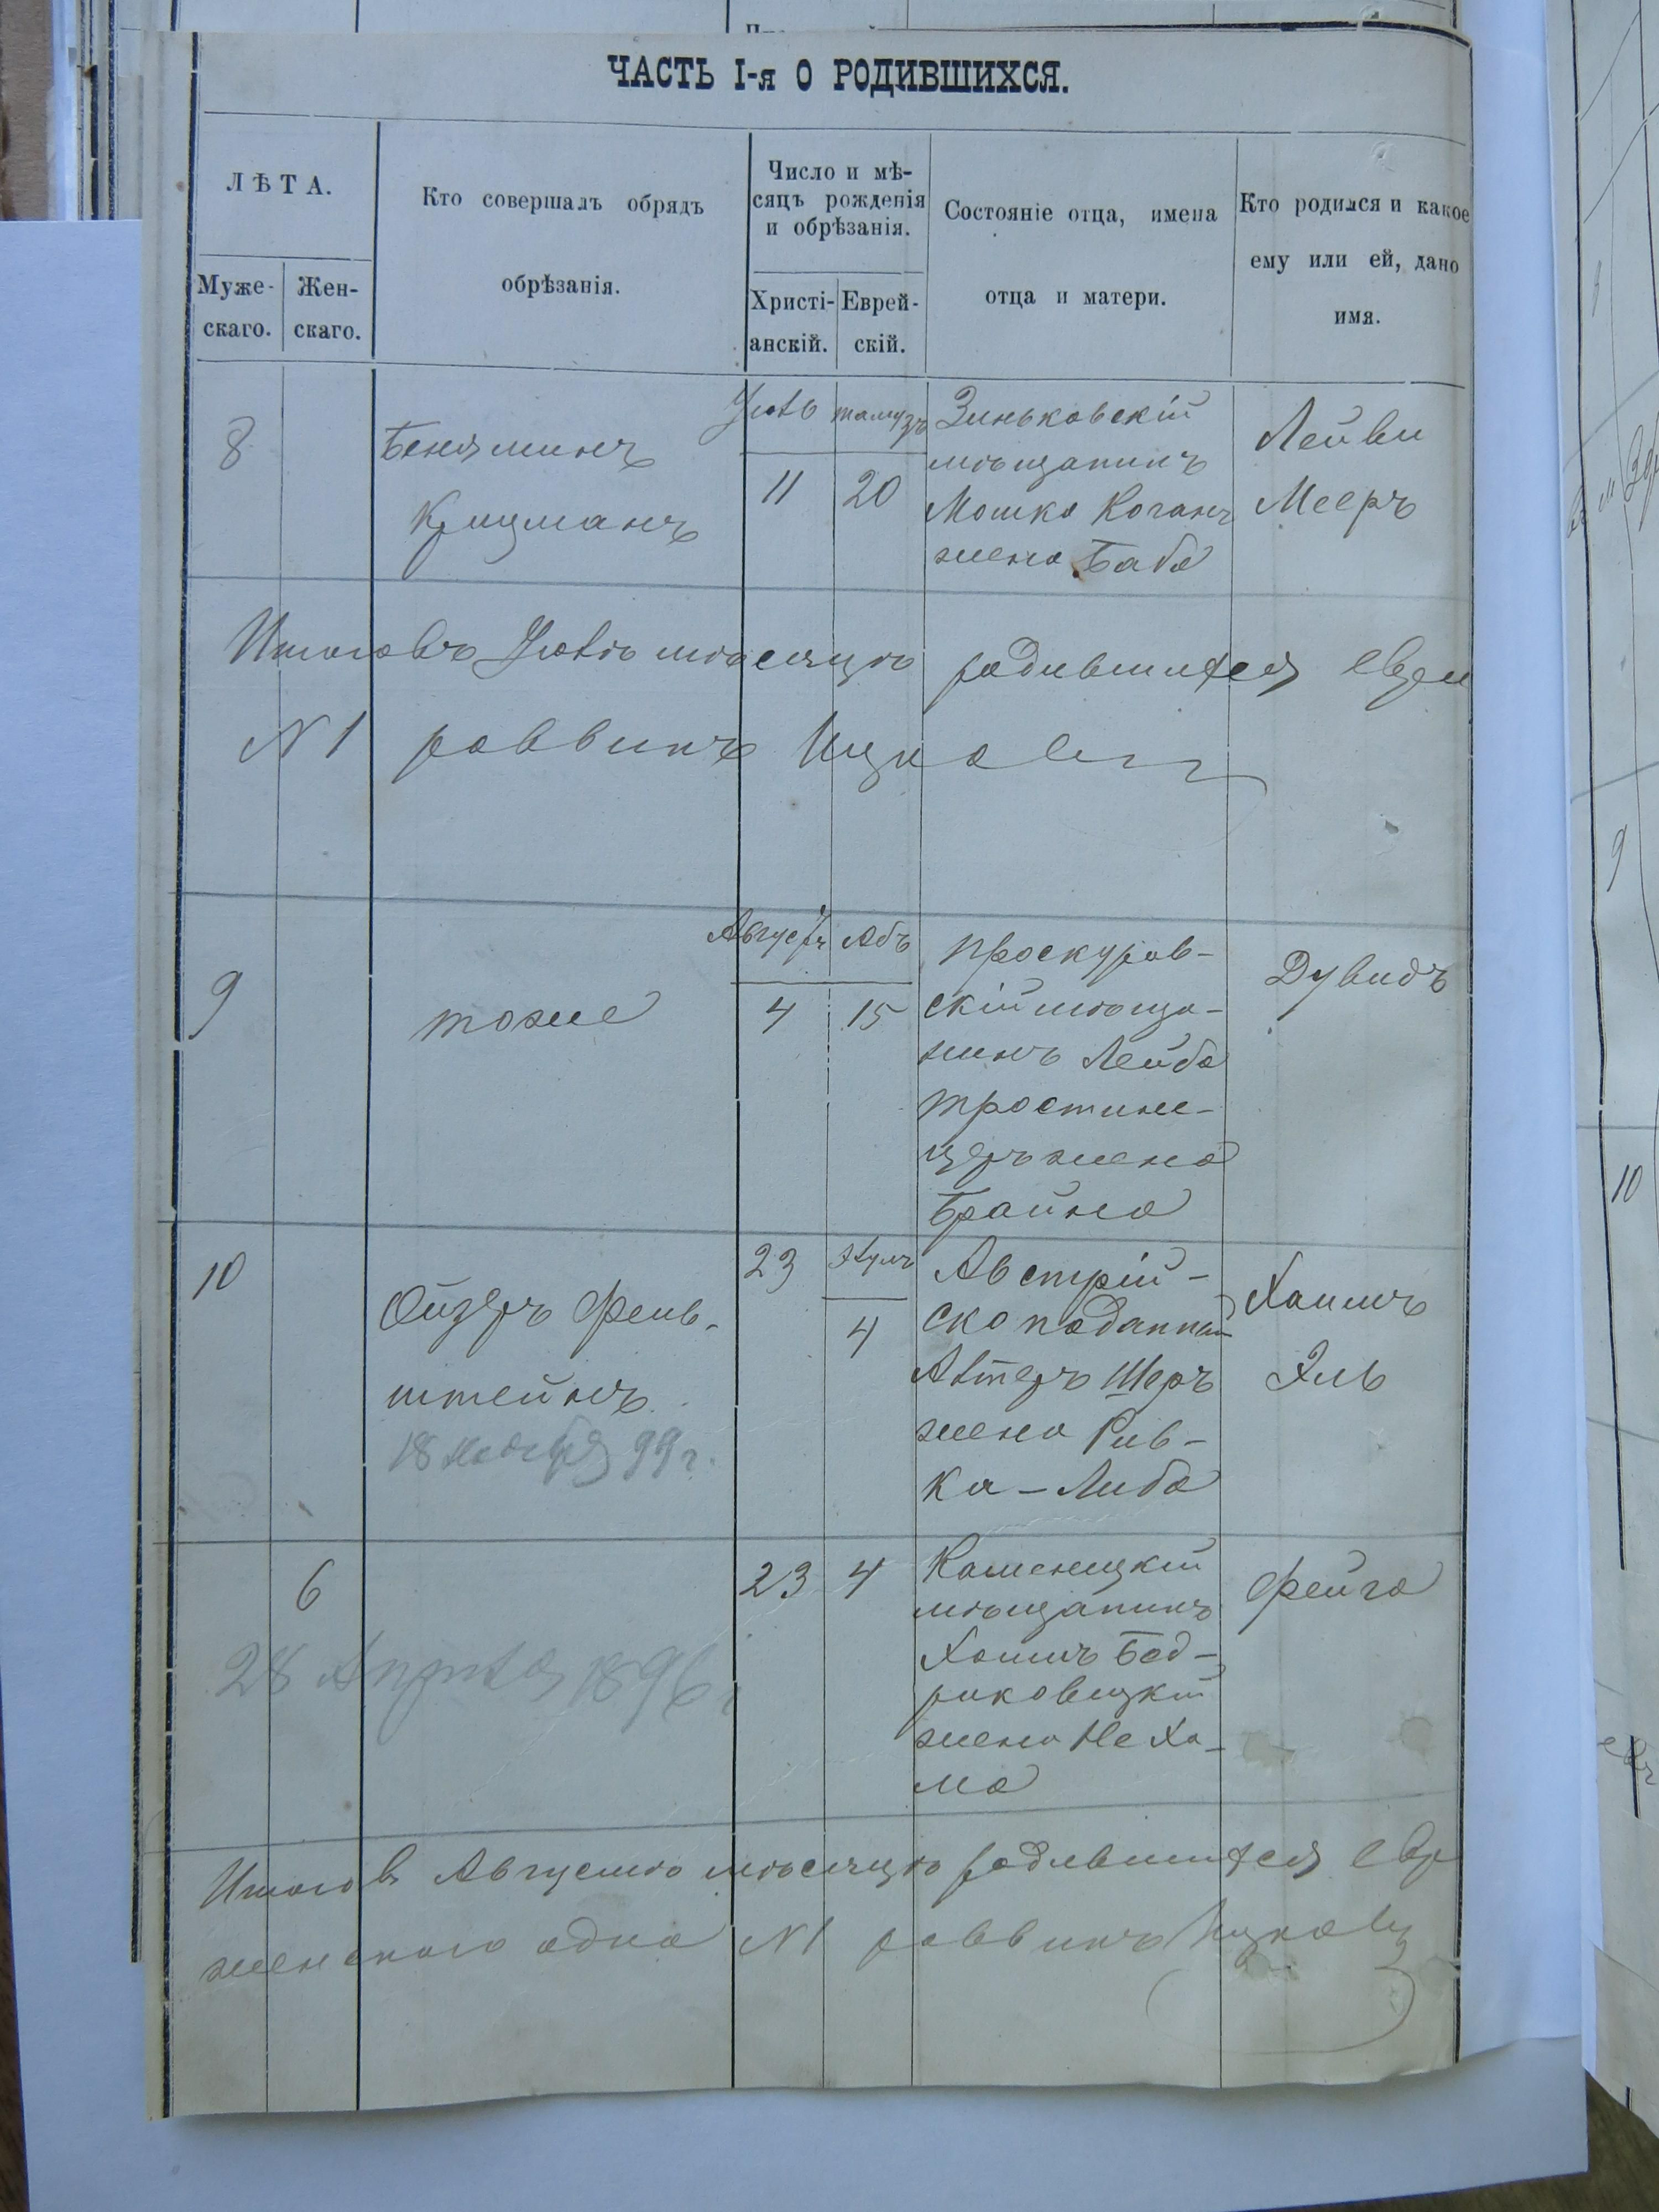 ЧАСТЬ I-я О РОДИВШИХСЯ.
ЛѢТА.
Муже-
скаго.
Жен-
скаго.
Кто совершалъ обрядъ
обрѣзанія.
Число и мѣ-
сяцъ рожденія
и обрѣзанія.
Христі-
анскій.
Еврей-
скій.
Состояніе отца, имена
отца и матери.
Кто родился и какое
ему или ей, дано
имя.
8
Беняминъ
Крицманъ
Юль
тамузъ
11
20
Зиньковскій
мѣщанинъ
Мошко Коганъ
жена Баба
Лейви
Мееръ
Итого въ Юлѣ мѣсяцѣ родившихся
N 1 раввинъ
9
тоже
Августъ
Абъ
4
15
проскуров-
скій мѣща-
нинъ Лейба
тростине-
церъ жена
Брайна
Дувидъ
10
Ойзеръ Фень-
штейнъ
18 Ноября 99 г.
23
Элулъ
4
Австрій-
ско поданный
Алтеръ Шеръ
жена Рив-
ка-Либа
Хаимъ
Эль
6
28 Апреля 1896 г
23
4
Каменецкій
мѣщанинъ
Хаимъ Бед-
риковецкій
жена Неха-
ма
Фейга
Итого въ Августѣ мѣсяцѣ родившихся евр
женского одна N 1 раввинъ
9
10